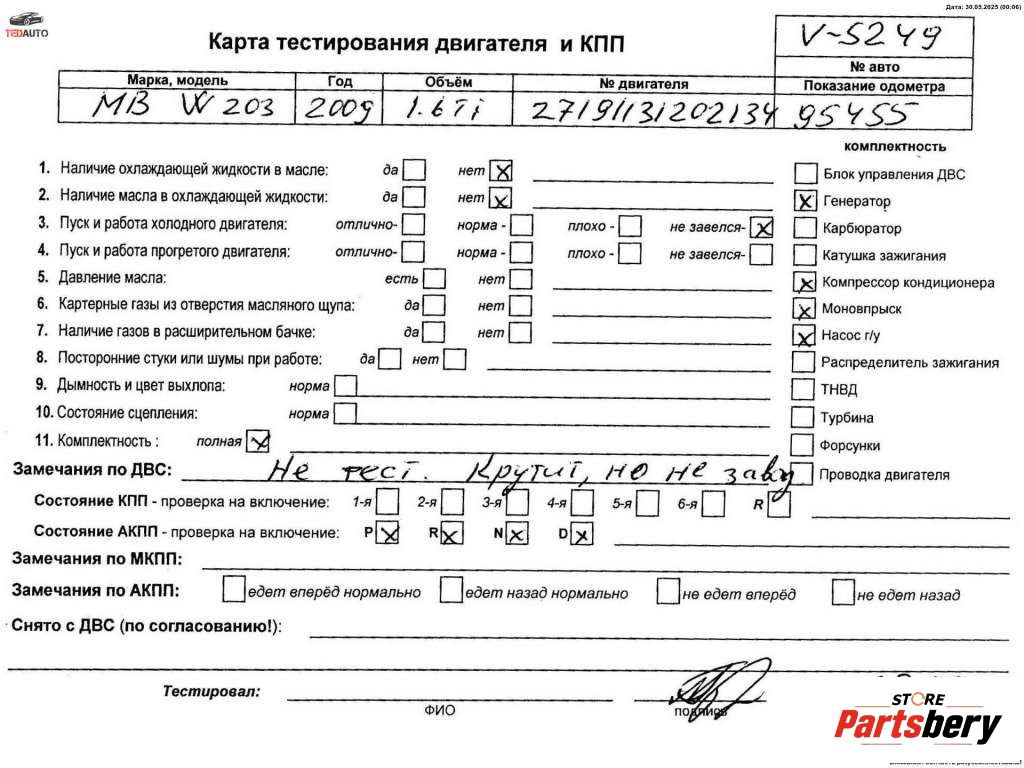 Дата: 30.05.2025 (00:06)
TEDAUTO
Карта тестирования двигателя и КПП
V-5249
№ авто
Марка, модель Год Объём № двигателя Показание одометра
MB W 203 2009 1.6 Ti 27191131202134 95455
комплектность
1. Наличие охлаждающей жидкости в масле: да нет
Блок управления ДВС
2. Наличие масла в охлаждающей жидкости: да нет
Генератор
3. Пуск и работа холодного двигателя: отлично- норма - плохо - не завелся-
Карбюратор
4. Пуск и работа прогретого двигателя: отлично- норма - плохо - не завелся-
Катушка зажигания
5. Давление масла: есть нет
Компрессор кондиционера
6. Картерные газы из отверстия масляного щупа: да нет
Моновпрыск
7. Наличие газов в расширительном бачке: да нет
Насос г/у
8. Посторонние стуки или шумы при работе: да нет
Распределитель зажигания
9. Дымность и цвет выхлопа: норма
ТНВД
10. Состояние сцепления: норма
Турбина
11. Комплектность : полная
Форсунки
Замечания по ДВС: Не тест. Крутит, но не завод
Проводка двигателя
Состояние КПП - проверка на включение: 1-я 2-я 3-я 4-я 5-я 6-я R
Состояние АКПП - проверка на включение: P R N D
Замечания по МКПП:
Замечания по АКПП: едет вперёд нормально едет назад нормально не едет вперёд не едет назад
Снято с ДВС (по согласованию!):
Тестировал:
ФИО подпись
STORE
Partsbery